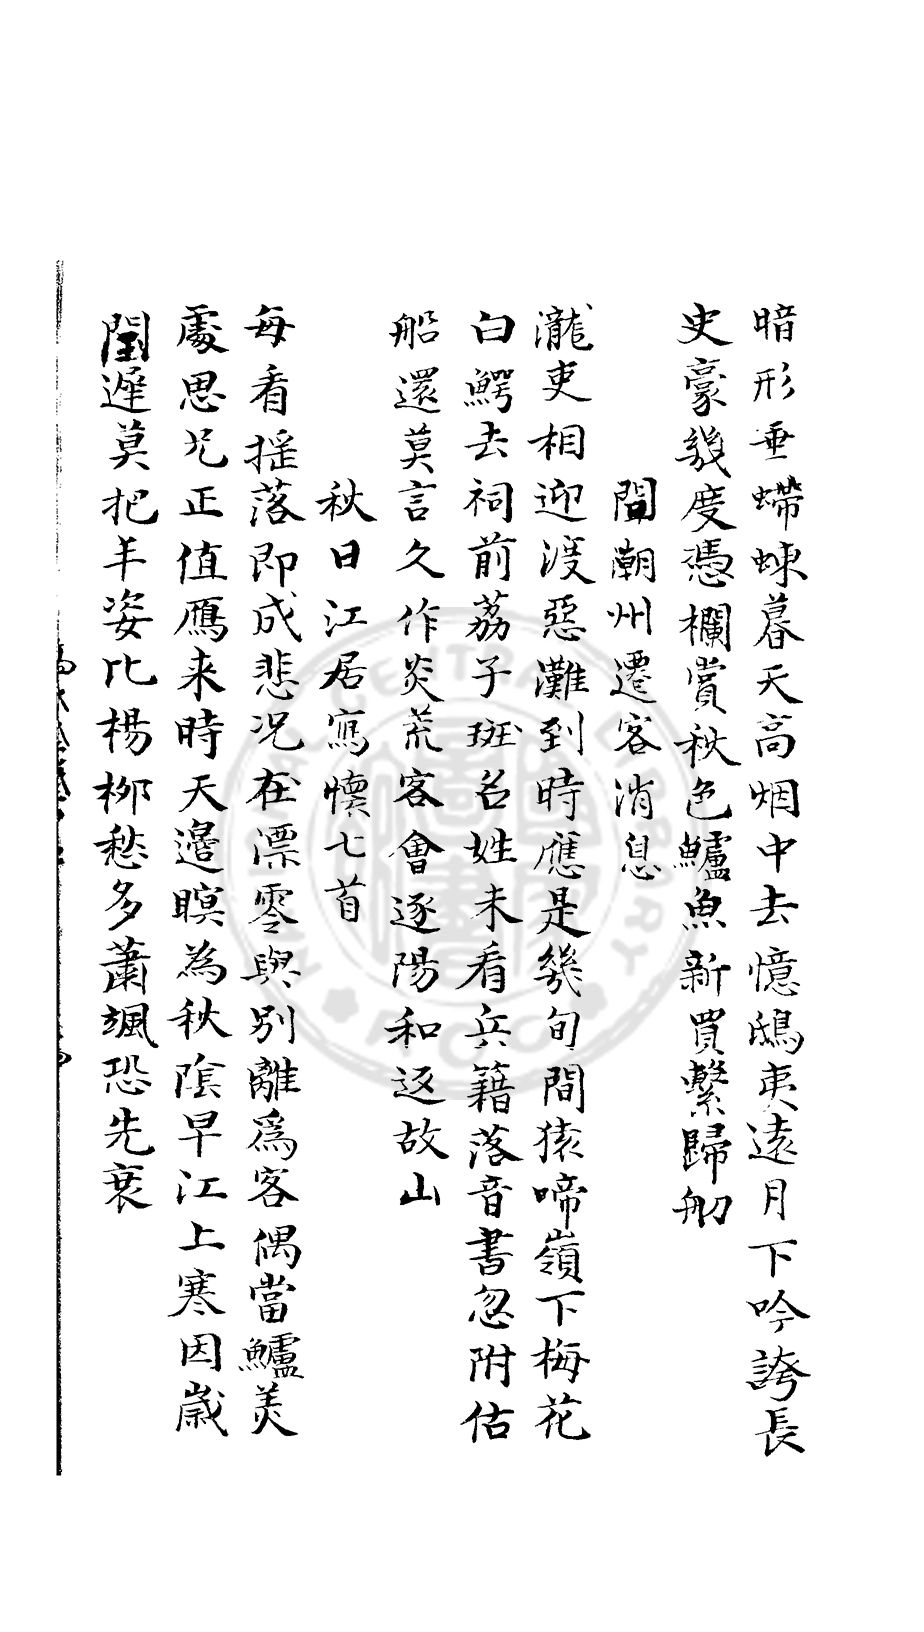 暗形垂螮蝀暮天高烟中去憶鴟夷遠月下吟誇長
史豪幾度憑欄賞秋色鱸魚新買繫歸舠
聞潮州遷客消息
瀧吏相迎渡惡灘到時應是幾旬間猿啼嶺下梅花
白鰐去祠前荔子斑名姓未看兵籍落音書忽附估
船還莫言久作炎荒客會逐陽和返故山
秋日江居寫懷七首
每看揺落即成悲况在漂零與別離爲客偶當鱸美
處思兄正值鴈来時天邊暝為秋陰早江上寒因歲
閏遲莫把年姿比楊柳愁多蕭颯恐先衰